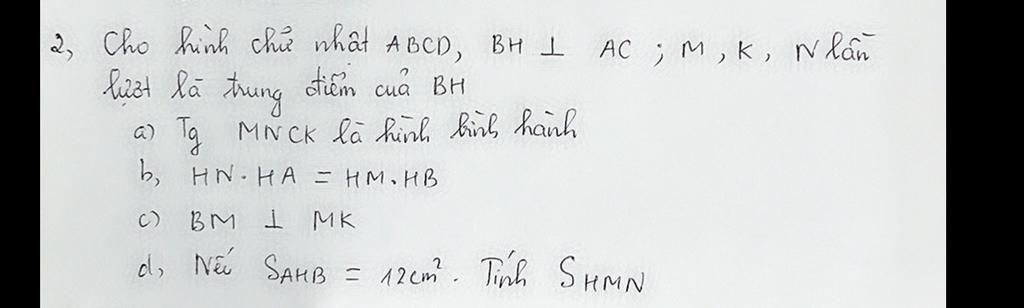 2, Cho hình chữ nhật ABCD, BH ⊥ AC ; M, K, N lần
lượt là trung điểm của BH
a) Tg MNCK là hình bình hành
b, HN. HA = HM. HB
c) BM ⊥ MK
d, Nếu S_AHB = 12cm². Tính S_HMN